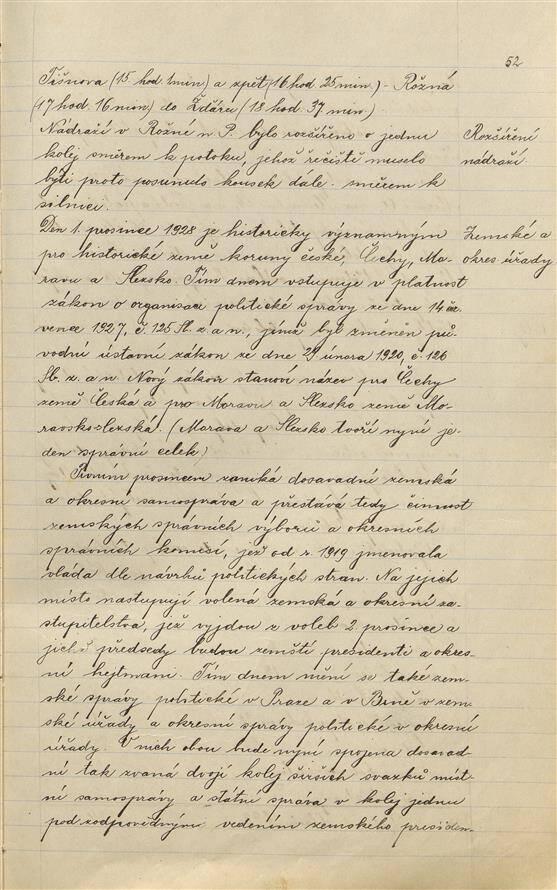 52
Tišnova (15 hod. 1 min.) a zpět (16 hod 25 min.) - Rožná
(17 hod. 16 min) do Žďáru (18 hod. 37 min.)
Nádraží v Rožné n P. bylo rozšířeno o jednu
kolej směrem k potoku, jehož řečiště muselo
býti proto posunuto kousek dále směrem k
silnici.
Rozšíření
nádraží.
Den 1. prosince 1928 je historicky významným
pro historické země koruny české, Čechy, Mo-
ravu a Slezsko. Tím dnem vstupuje v platnost
zákon o organisaci politické správy ze dne 14 če.
vence 1927, č. 125 Sb. z. a n., jímž byl změněn pů-
vodní ústavní zákon ze dne 29 února 1920, č. 126
Sb. z. a n. Nový zákon stanoví název pro Čechy
země Česká a pro Moravu a Slezsko země Mo-
ravskoslezská. (Morava a Slezsko tvoří nyní je-
den správní celek.)
Zemské a
okres. úřady
Prvním prosincem zaniká dosavadní zemská
a okresní samospráva a přestává tedy činnost
zemských správních výborů a okresních
správních komisí, jež od r. 1919 jmenovala
vláda dle návrhů politických stran. Na jejich
místo nastupují volená zemská a okresní za-
stupitelstva, jež vyjdou z voleb 2. prosince a
jichž předsedy budou zemští presidenti a okres-
ní hejtmani. Tím dnem mění se také zem-
ské správy politické v Praze a v Brně v zem-
ské úřady a okresní správy politické v okresní
úřady. V nich obou bude nyní spojena dosavad-
ní tak zvaná dvojí kolej širších svazků míst-
ní samosprávy a státní správa v kolej jednu
pod zodpovědným vedením zemského presiden-